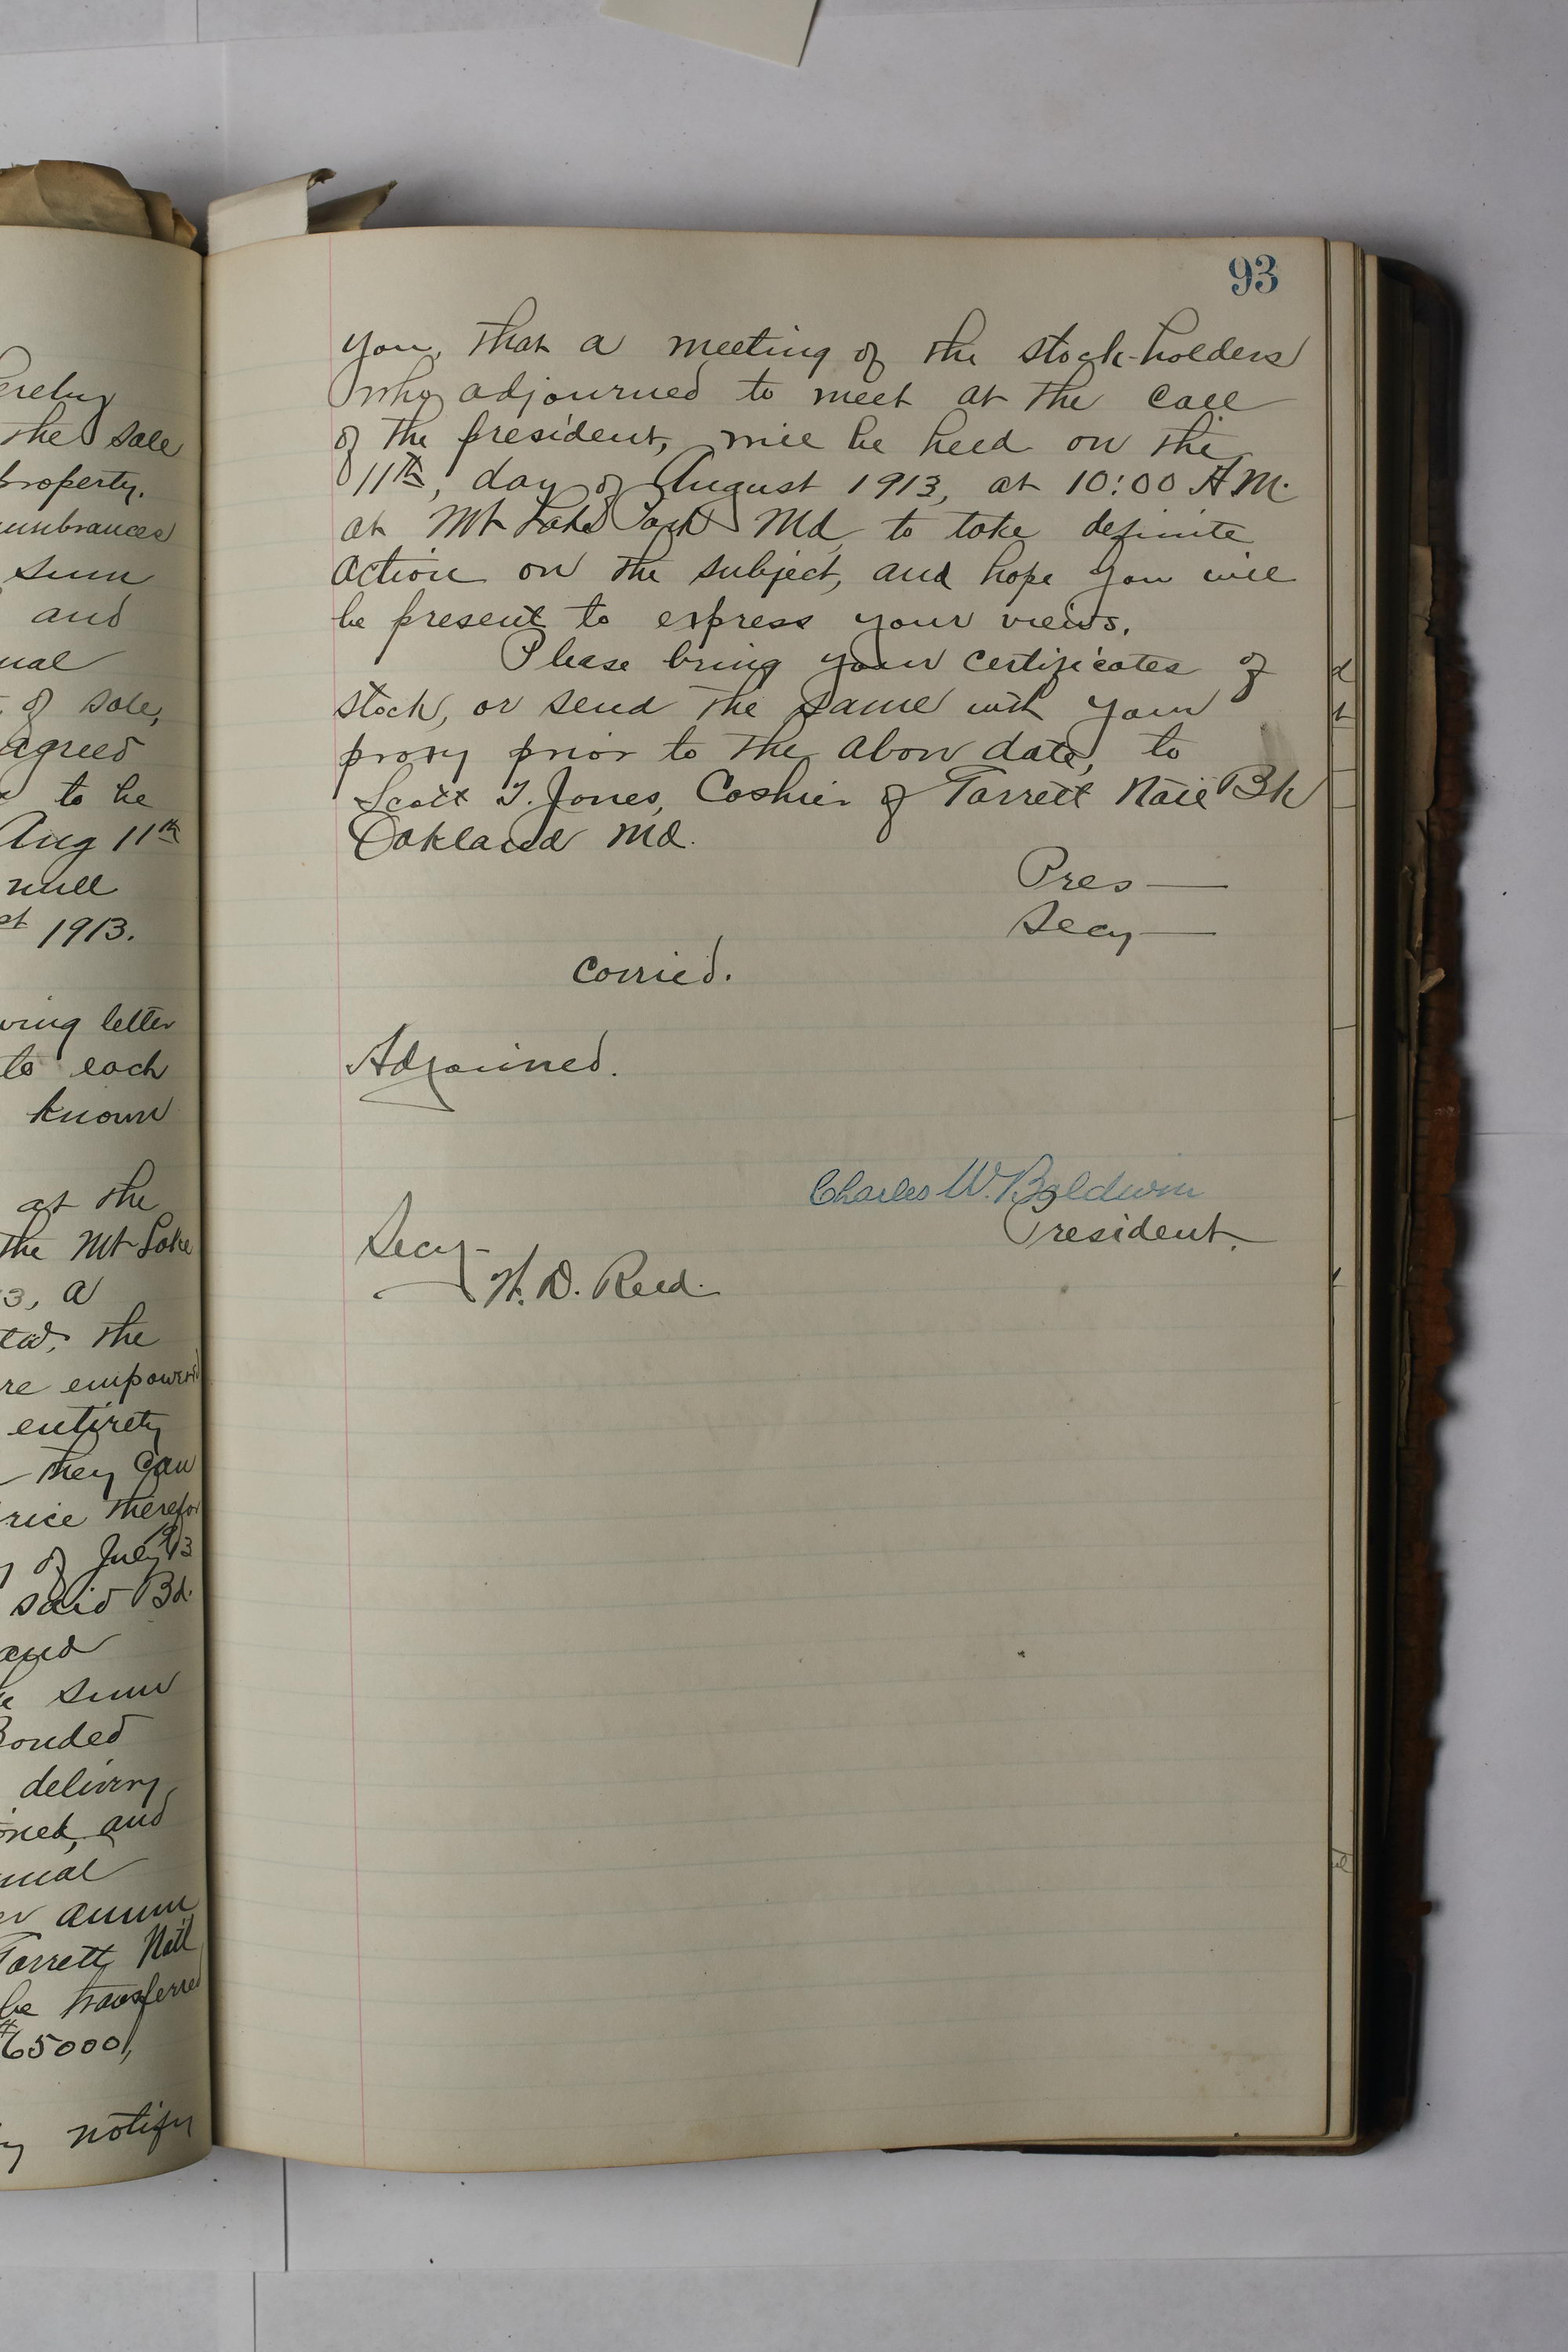 hereby
the sale
property.
umbrances
sum
and
ual
of sale,
agreed
to be
Aug 11th
null
st 1913.
wing letter
to each
known
at the
the Mt Lake
3, a
the
re empowered
entirety
they can
rice therefor
of July 1913
said Bd.
and
sum
Bonded
delivery,
and
ual
annum
Garrett Natl
be transferred
$65000,
notify
93
you, that a meeting of the stock-holders
who adjourned to meet at the call
of the president, will be held on the
11th, day of August 1913, at 10:00 A.M.
at Mt Lake Park Md, to take definite
action on the subject, and hope you will
be present to express your views.
Please bring your certificates of
stock, or send the same with your
proxy prior to the above date, to
Scott T. Jones, Cashier of Garrett Natl Bk
Oakland Md.
Pres —
Secy —
Carried.
Adjourned.
Charles W. Baldwin
President.
Secy-
W. D. Reed.